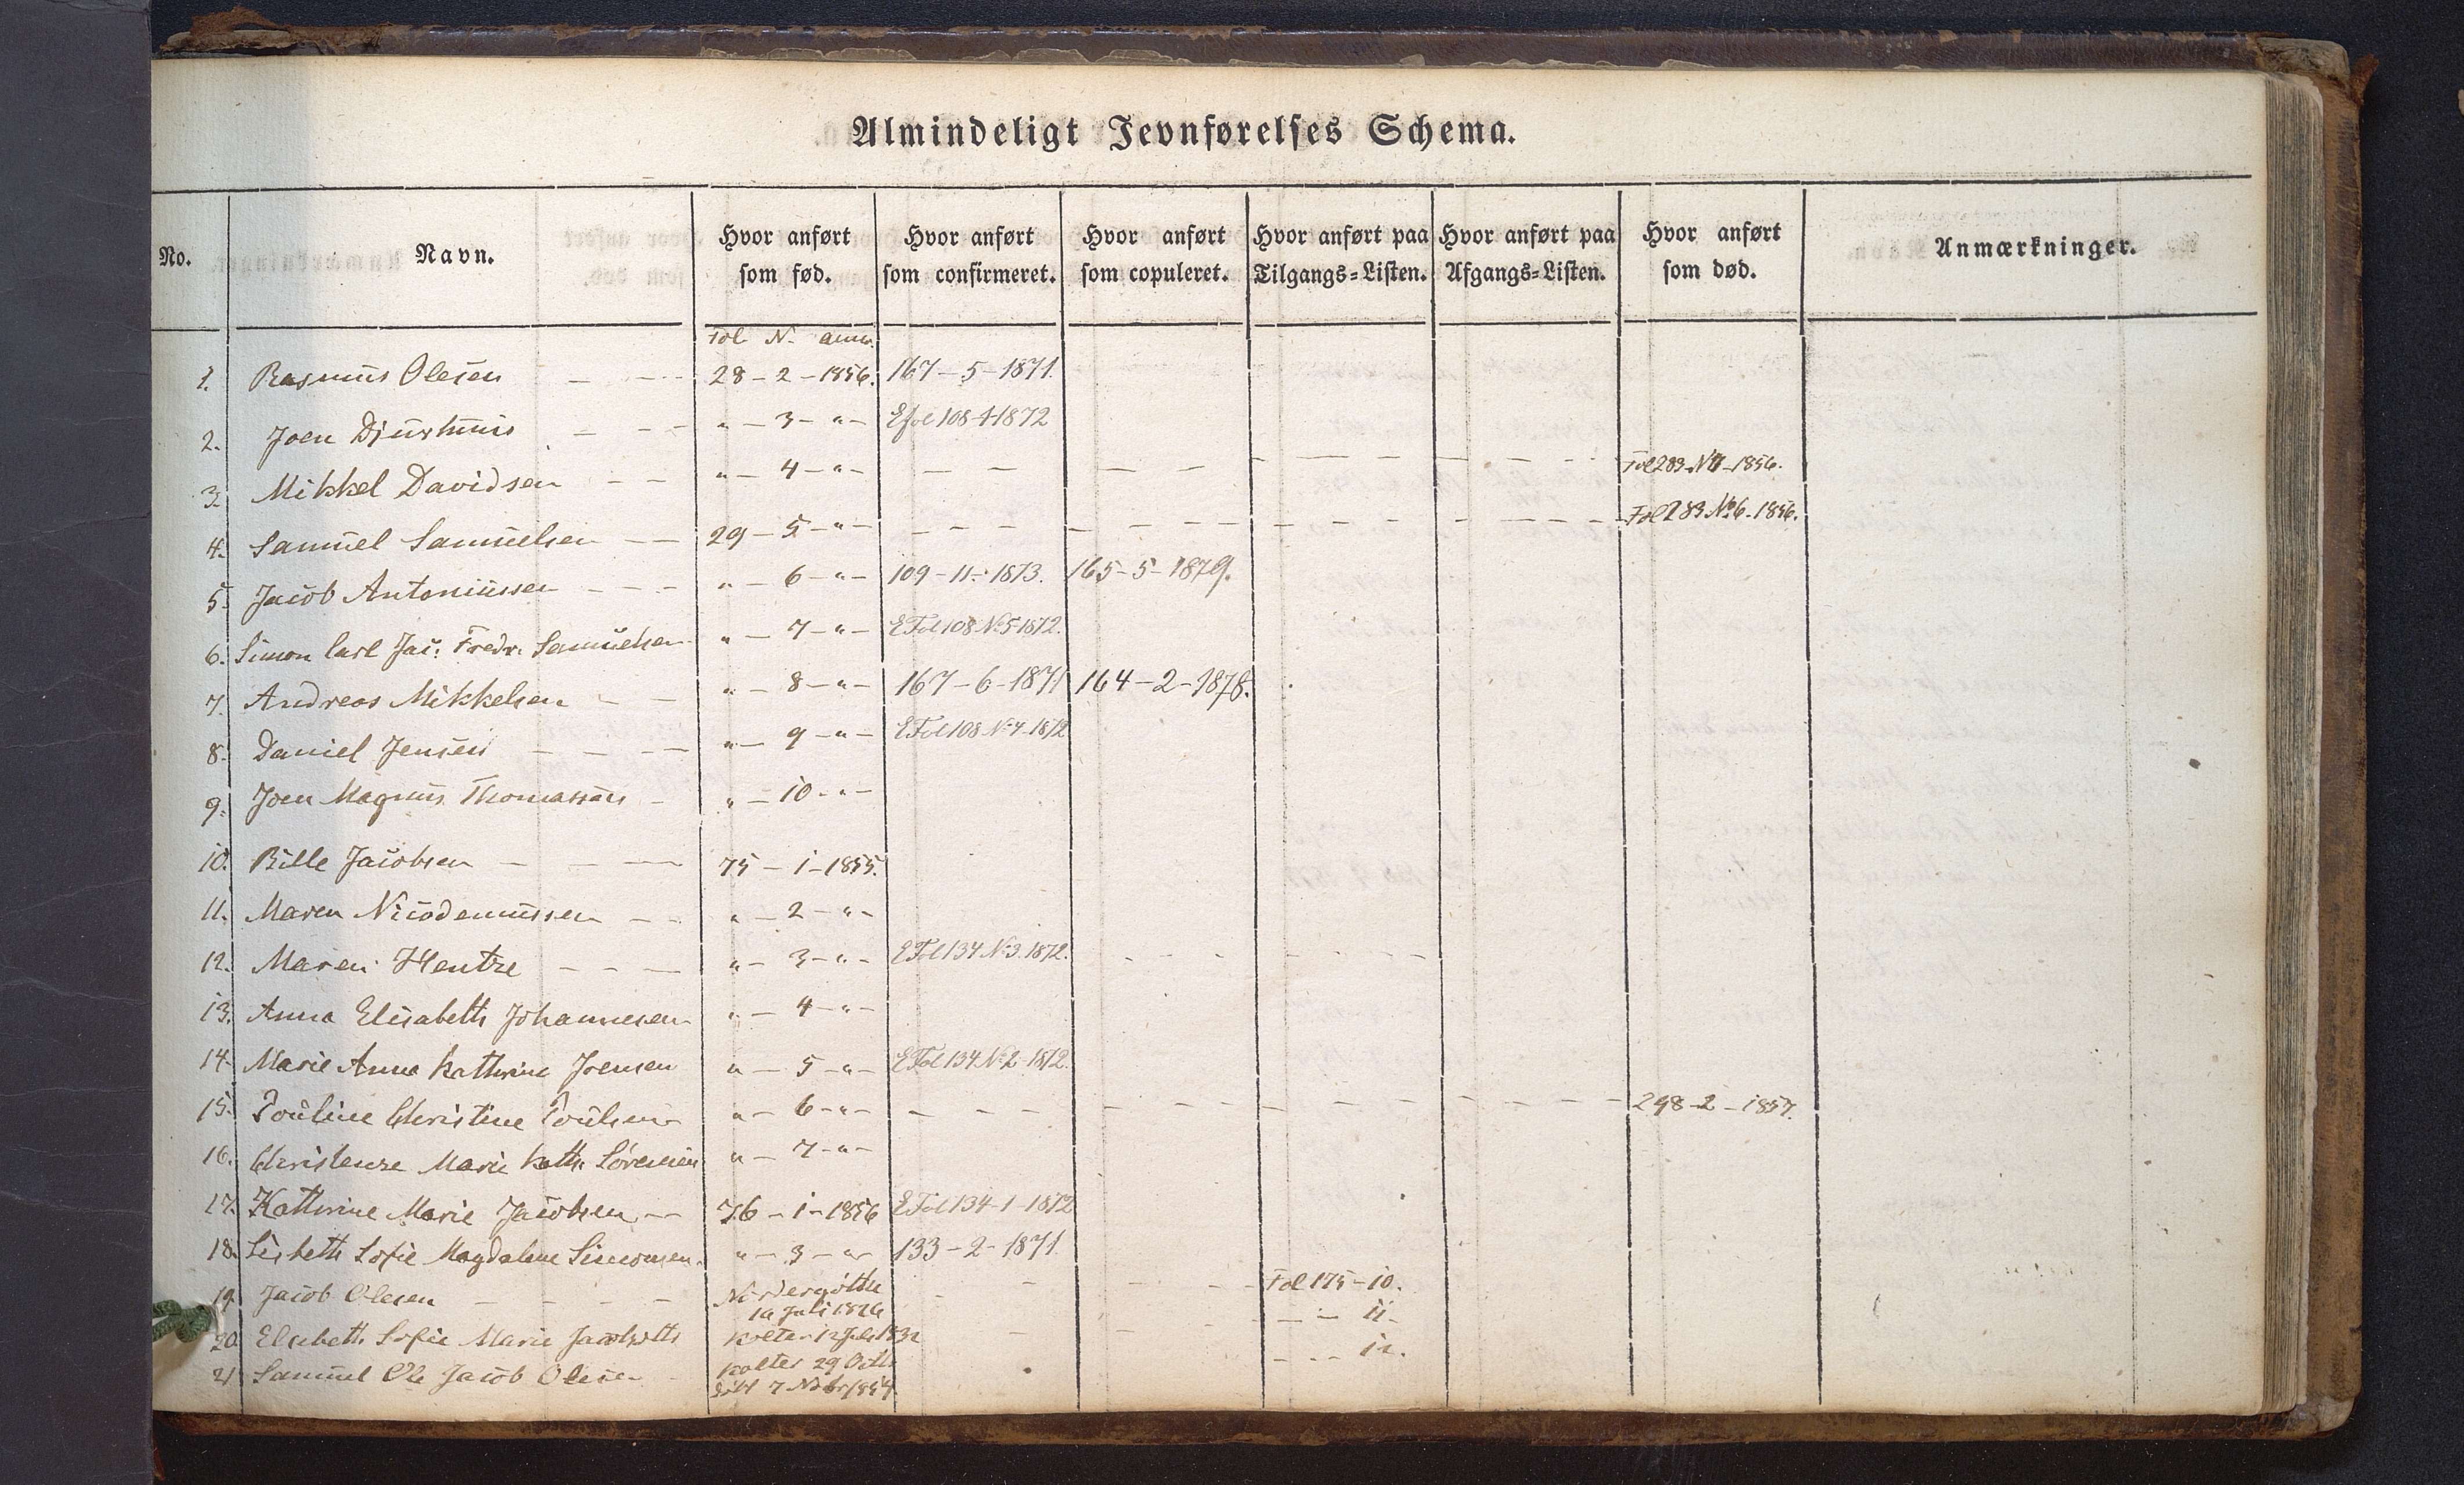 Almindeligt Jevnførelses Schema.
No. Navn. Hvor anført som fød. Hvor anført som confirmeret. Hvor anført som copuleret. Hvor anført paa Tilgangs=Listen. Hvor anført paa Afgangs=Listen. Hvor anført som død. Anmærkninger.
Fol N. anno.
1. Rasmus Olesen — — 28 – 2 – 1856. 167 – 5 – 1871.
2. Joen Djurhuus — — „ – 3 – „ – Efol 108-4-1872
3. Mikkel Davidsen — — „ – 4 – „ – — — — — — — — Fol 289 – 1856.
4. Samuel Samuelsen — — 29 – 5 – „ – — — — — — — — Fol 289 No 6 – 1856.
5. Jacob Antoniussen — — „ – 6 – „ – 109 – 11 – 1873. 165 – 5 – 1879.
6. Simon Carl Jac: Fredr. Samuelsen „ – 7 – „ – EFol 108 No 5 1872.
7. Andreas Mikkelsen — — „ – 8 – „ – 167 – 6 – 1871 164 – 2 – 1878.
8. Daniel Jensen — — — „ – 9 – „ – EFol 108 No 7 1872
9. Joen Magnus Thomassen — „ – 10 – „ –
10. Bille Jacobsen — — — 75 – 1 – 1855.
11. Maren Nicodemussen — — „ – 2 – „ –
12. Maren Hentze — — — „ – 3 – „ – EFol 134 No 3. 1872. — — — —
13. Anna Elisabeth Johannesen „ – 4 – „ –
14. Marie Anna Kathrine Joensen „ – 5 – „ – EFol 134 No 2 – 1872.
15. Pouline Christine Poulsen „ – 6 – „ – — — — — — — — 298 – 2 – 1857.
16. Christenze Marie Kath. Sörensen „ – 7 – „ –
17. Kathrine Marie Jacobsen — 76 – 1 – 1856 EFol 134 – 1 – 1872
18. Lisbeth Sofie Magdalene Simonsen. „ – 3 – „ – 133 – 2 – 1871
19. Jacob Olesen — — — — Nordergøthe — — — Fol 175 – 10.
16 Juli 1826
20. Elsebeth Sofie Marie Jacobsdtt Kolter 12 Juli 1832 — — — — 11.
21. Samuel Ole Jacob Olesen Kolter 29 Octb — — 12.
7 Novbr 1854.